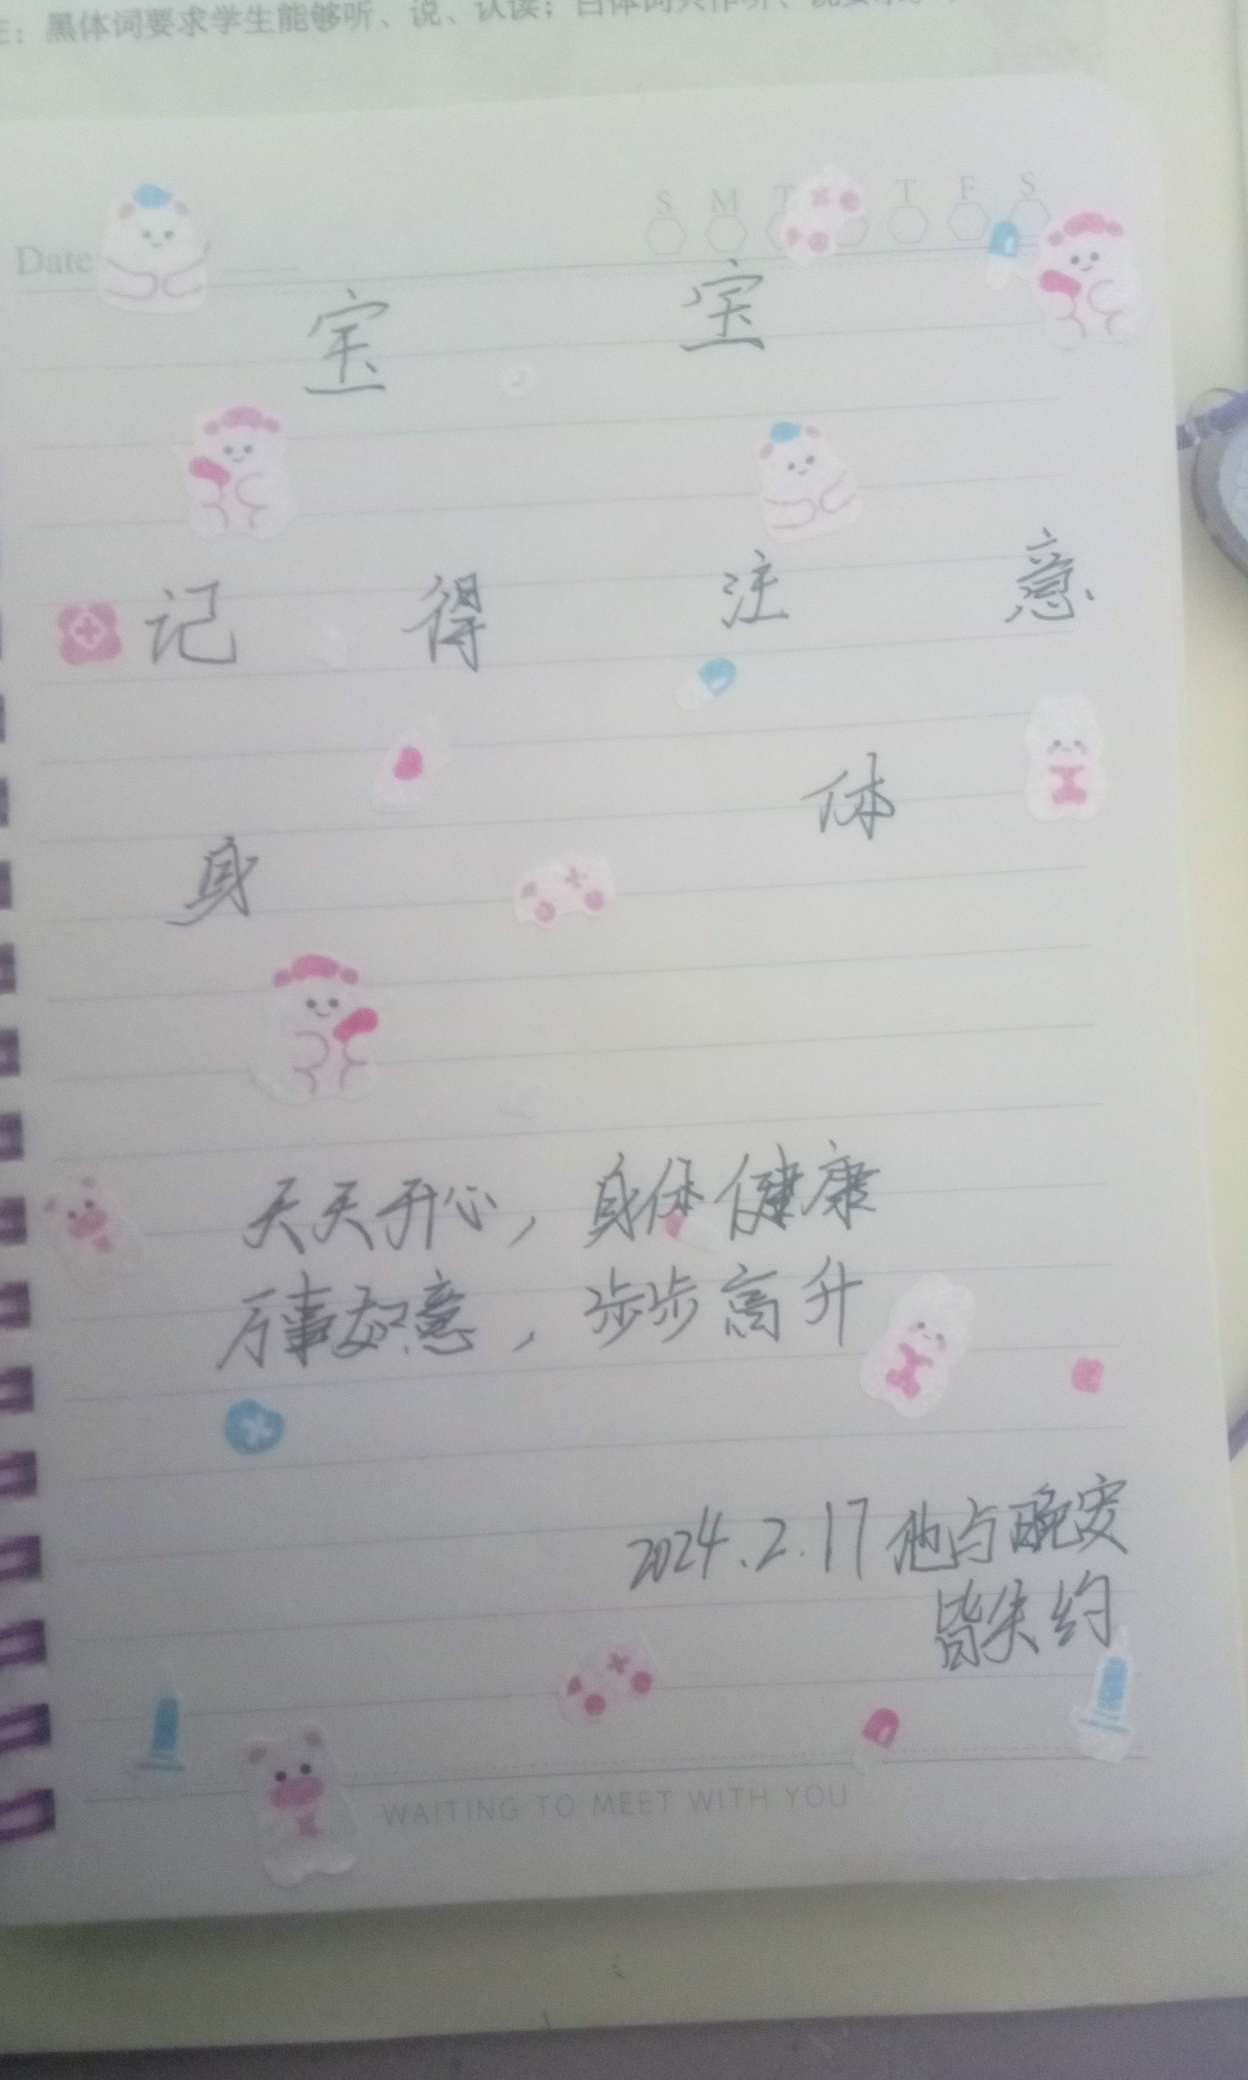 注：黑体词要求学生能够听、说、认读；白体词只作听、说要求
Date
S M T T F S
宝 宝
记 得 注 意
身 体
天天开心，身体健康
万事如意，步步高升
2024.2.17 他占晚安
皆失约
WAITING TO MEET WITH YOU